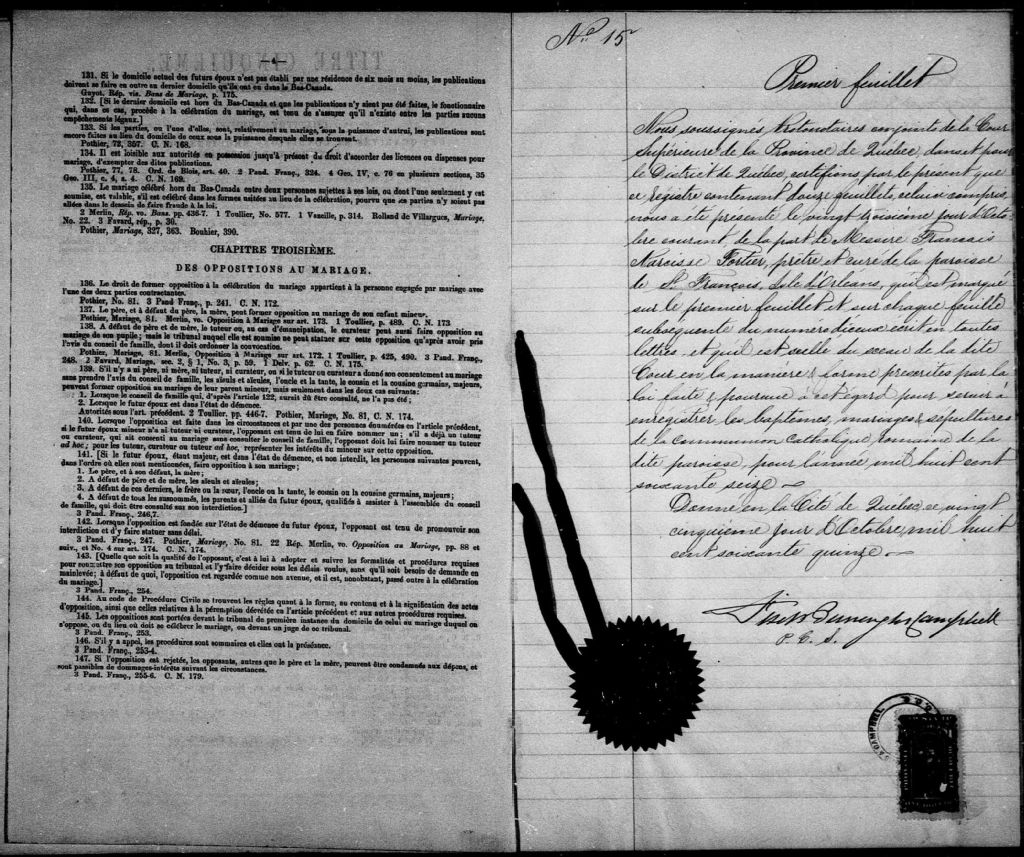 —4—
131. Si le domicile actuel des futurs époux n'est pas établi par une résidence de six mois au moins, les publications
doivent se faire en outre au dernier domicile qu'ils ont eu dans le Bas-Canada.
Guyot. Rép. vis. Bans de Mariage, p. 175.
132. [Si le dernier domicile est hors du Bas-Canada et que les publications n'y aient pas été faites, le fonctionnaire
qui, dans ce cas, procède à la célébration du mariage, est tenu de s'assurer qu'il n'existe entre les parties aucuns
empêchements légaux.]
133. Si les parties, ou l'une d'elles, sont, relativement au mariage, sous la puissance d'autrui, les publications sont
encore faites au lieu du domicile de ceux sous la puissance desquels elles se trouvent.
Pothier, 72, 357. C. N. 168.
134. Il est loisible aux autorités en possession jusqu'à présent du droit d'accorder des licences ou dispenses pour
mariage, d'exempter des dites publications.
Pothier, 77, 78. Ord. de Blois, art. 40. 2 Pand. Franç., 324. 4 Geo. IV, c. 76 en plusieurs sections, 35
Geo. III, c. 4, s. 4. C. N. 169.
135. Le mariage célébré hors du Bas-Canada entre deux personnes sujettes à ses lois, ou dont l'une seulement y est
soumise, est valable, s'il est célébré dans les formes usitées au lieu de la célébration, pourvu que les parties n'y soient pas
allées dans le dessein de faire fraude à la loi.
2 Merlin, Rép. vo. Bans. pp. 436-7. 1 Toullier, No. 577. 1 Vazeille, p. 314. Rolland de Villargues, Mariage,
No. 22. 3 Favard, rép., p. 30.
Pothier, Mariage, 327, 363. Bouhier, 390.
CHAPITRE TROISIÈME.
DES OPPOSITIONS AU MARIAGE.
136. Le droit de former opposition à la célébration du mariage appartient à la personne engagée par mariage avec
l'une des deux parties contractantes.
Pothier, No. 81. 3 Pand Franç., p. 241. C. N. 172.
137. Le père, et à défaut du père, la mère, peut former opposition au mariage de son enfant mineur.
Pothier, Mariage, 81. Merlin, vo. Opposition à Mariage sur art. 173. 1 Toullier, p. 489. C. N. 173
138. A défaut de père et de mère, le tuteur ou, au cas d'émancipation, le curateur peut aussi faire opposition au
mariage de son pupille; mais le tribunal auquel elle est soumise ne peut statuer sur cette opposition qu'après avoir pris
l'avis du conseil de famille, dont il doit ordonner la convocation.
Pothier, Mariage, 81. Merlin, Opposition à Mariage sur art. 172. 1 Toullier, p. 425, 490. 3 Pand. Franç.,
248. 2 Favard, Mariage, sec. 2, § 1, No. 3, p. 59. 1 Delv. p. 62. C. N. 175.
139. S'il n'y a ni père, ni mère, ni tuteur, ni curateur, ou si le tuteur ou curateur a donné son consentement au mariage
sans prendre l'avis du conseil de famille, les aïeuls et aïeules, l'oncle et la tante, le cousin et la cousine germains, majeurs,
peuvent former opposition au mariage de leur parent mineur, mais seulement dans les deux cas suivants:
1. Lorsque le conseil de famille qui, d'après l'article 122, aurait dû être consulté, ne l'a pas été;
2. Lorsque le futur époux est dans l'état de démence.
Autorités sous l'art. précédent. 2 Toullier, pp. 446-7. Pothier, Mariage, No. 81, C. N. 174.
140. Lorsque l'opposition est faite dans les circonstances et par une des personnes énumérées en l'article précédent,
si le futur époux mineur n'a ni tuteur ni curateur, l'opposant est tenu de lui en faire nommer un; s'il a déjà un tuteur
ou curateur, qui ait consenti au mariage sans consulter le conseil de famille, l'opposant doit lui faire nommer un tuteur
ad hoc; pour les tuteur, curateur ou tuteur ad hoc, représenter les intérêts du mineur sur cette opposition.
141. [Si le futur époux, étant majeur, est dans l'état de démence, et non interdit, les personnes suivantes peuvent,
dans l'ordre où elles sont mentionnées, faire opposition à son mariage;
1. Le père, et à son défaut, la mère;
2. A défaut de père et de mère, les aïeuls et aïeules;
3. A défaut de ces derniers, le frère ou la sœur, l'oncle ou la tante, le cousin ou la cousine germains, majeurs;
4. A défaut de tous les susnommés, les parents et alliés du futur époux, qualifiés à assister à l'assemblée du conseil
de famille, qui doit être consulté sur son interdiction.]
3 Pand. Franç., 246,7.
142. Lorsque l'opposition est fondée sur l'état de démence du futur époux, l'opposant est tenu de promouvoir son
interdiction et d'y faire statuer sans délai.
3 Pand. Franç., 247. Pothier, Mariage, No. 81. 22 Rép. Merlin, vo. Opposition au Mariage, pp. 88 et
suiv., et No. 4 sur art. 174. C. N. 174.
143. [Quelque que soit la qualité de l'opposant, c'est à lui à adopter et suivre les formalités et procédures requises
pour soumettre son opposition au tribunal et l'y faire décider sous les délais voulus, sans qu'il soit besoin de demande en
mainlevée; à défaut de quoi, l'opposition est regardée comme non avenue, et il est, nonobstant, passé outre à la célébration
du mariage.]
3 Pand. Franç., 254.
144. Au code de Procédure Civile se trouvent les règles quant à la forme, au contenu et à la signification des actes
d'opposition, ainsi que celles relatives à la péremption décrétée en l'article précédent et aux autres procédures requises.
145. Les oppositions sont portées devant le tribunal de première instance du domicile de celui au mariage duquel on
s'oppose, ou du lieu où doit se célébrer le mariage, ou devant un juge de ce tribunal.
3 Pand. Franç., 253.
146. S'il y a appel, les procédures sont sommaires et elles ont la préséance.
3 Pand. Franç., 253-4.
147. Si l'opposition est rejetée, les opposants, autres que le père et la mère, peuvent être condamnés aux dépens, et
sont passibles de dommages-intérêts suivant les circonstances.
3 Pand. Franç., 255-6. C. N. 179.
No 15
Premier feuillet
Nous soussignés, Protonotaires conjoints de la Cour
Supérieure de la Province de Québec, dans et pour
le District de Québec, certifions par le present que
ce régistre contenant douze feuillets, celui ci compris,
nous a été presenté le vingt troisième jour d'Octo-
bre courant, de la part de Messire Francais
Narcisse Fortier, prêtre et curé de la paroisse
de St François, Isle d'Orléans, qu'il est marqué
sur le premier feuillet et sur chaque feuille
subsequente du numéro d'iceux écrit en toutes
lettres, et qu'il est scellé du sceau de la dite
Cour en la manière & forme prescrites par la
loi faite & pourvue à cet égard pour servir à
enregistrer les baptêmes, mariages & sépultures
de la Communion Catholique, romaine de la
dite paroisse, pour l'année mil huit cent
soixante seize —
Donné en la Cité de Québec, ce vingt
cinquième jour d'Octobre, mil huit
cent soixante quinze —
Fiset Burroughs Campbell
P. C. S.
CAMPBELL